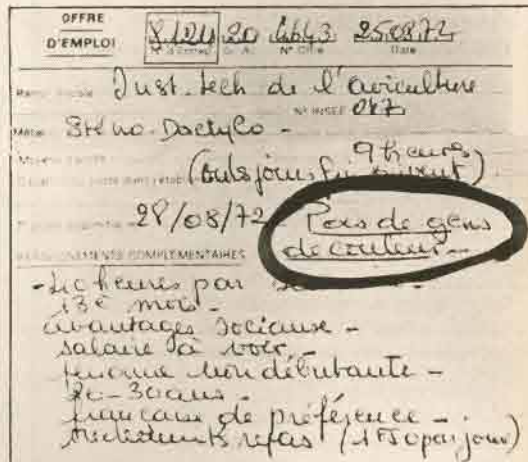 OFFRE
D'EMPLOI
8.124 20 4643 25.08.72
N° Offre Date
Inst. tech de l'aviculture
N° INSEE 087
Métier Sténo-Dactylo -
9 heures
(tous jours
28/08/72 - Pas de gens
de couleur -
RENSEIGNEMENTS COMPLEMENTAIRES
- 40 heures par
13e mois -
avantages sociaux -
salaire à voir -
femme non débutante -
20-30 ans -
française de préférence -
repas (1F50 par jour)